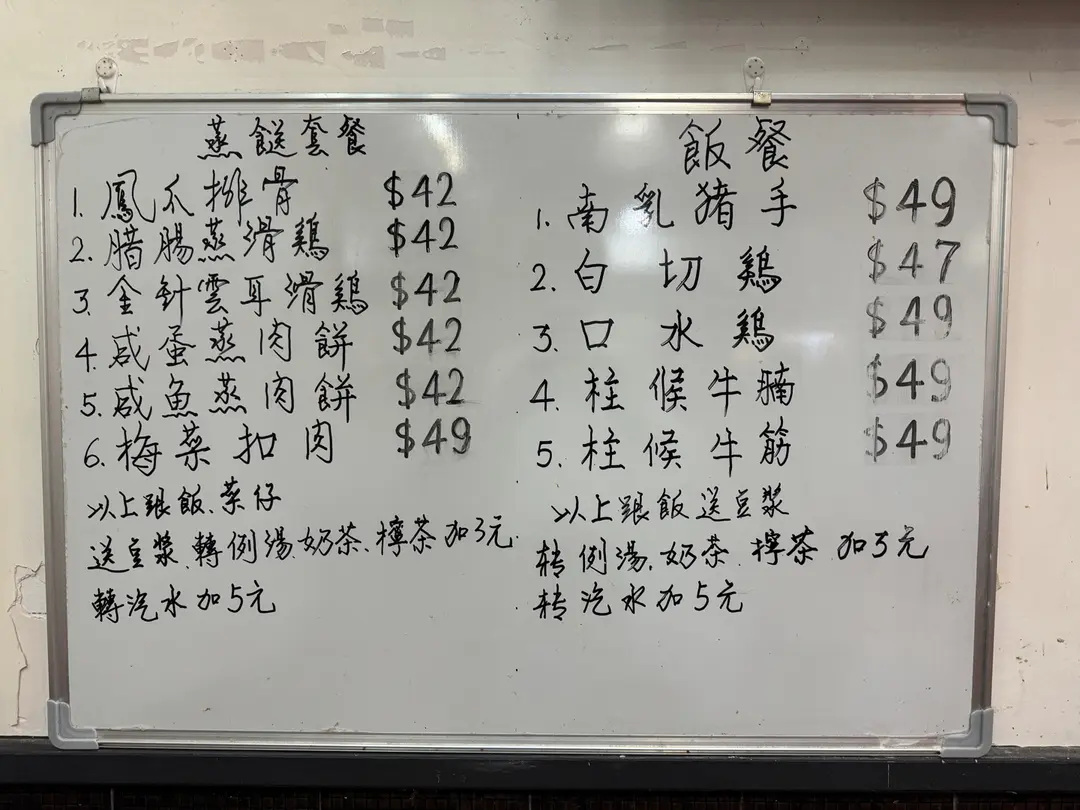 蒸餸套餐
1. 鳳爪排骨 $42
2. 腊腸蒸滑鷄 $42
3. 金針雲耳滑鷄 $42
4. 咸蛋蒸肉餅 $42
5. 咸魚蒸肉餅 $42
6. 梅菜扣肉 $49
以上跟飯、菜仔
送豆漿、轉例湯、奶茶、檸茶加3元
轉汽水加5元
飯餐
1. 南乳猪手 $49
2. 白切鷄 $47
3. 口水鷄 $49
4. 柱候牛腩 $49
5. 柱候牛筋 $49
以上跟飯送豆漿
转例湯、奶茶、檸茶加3元
转汽水加5元